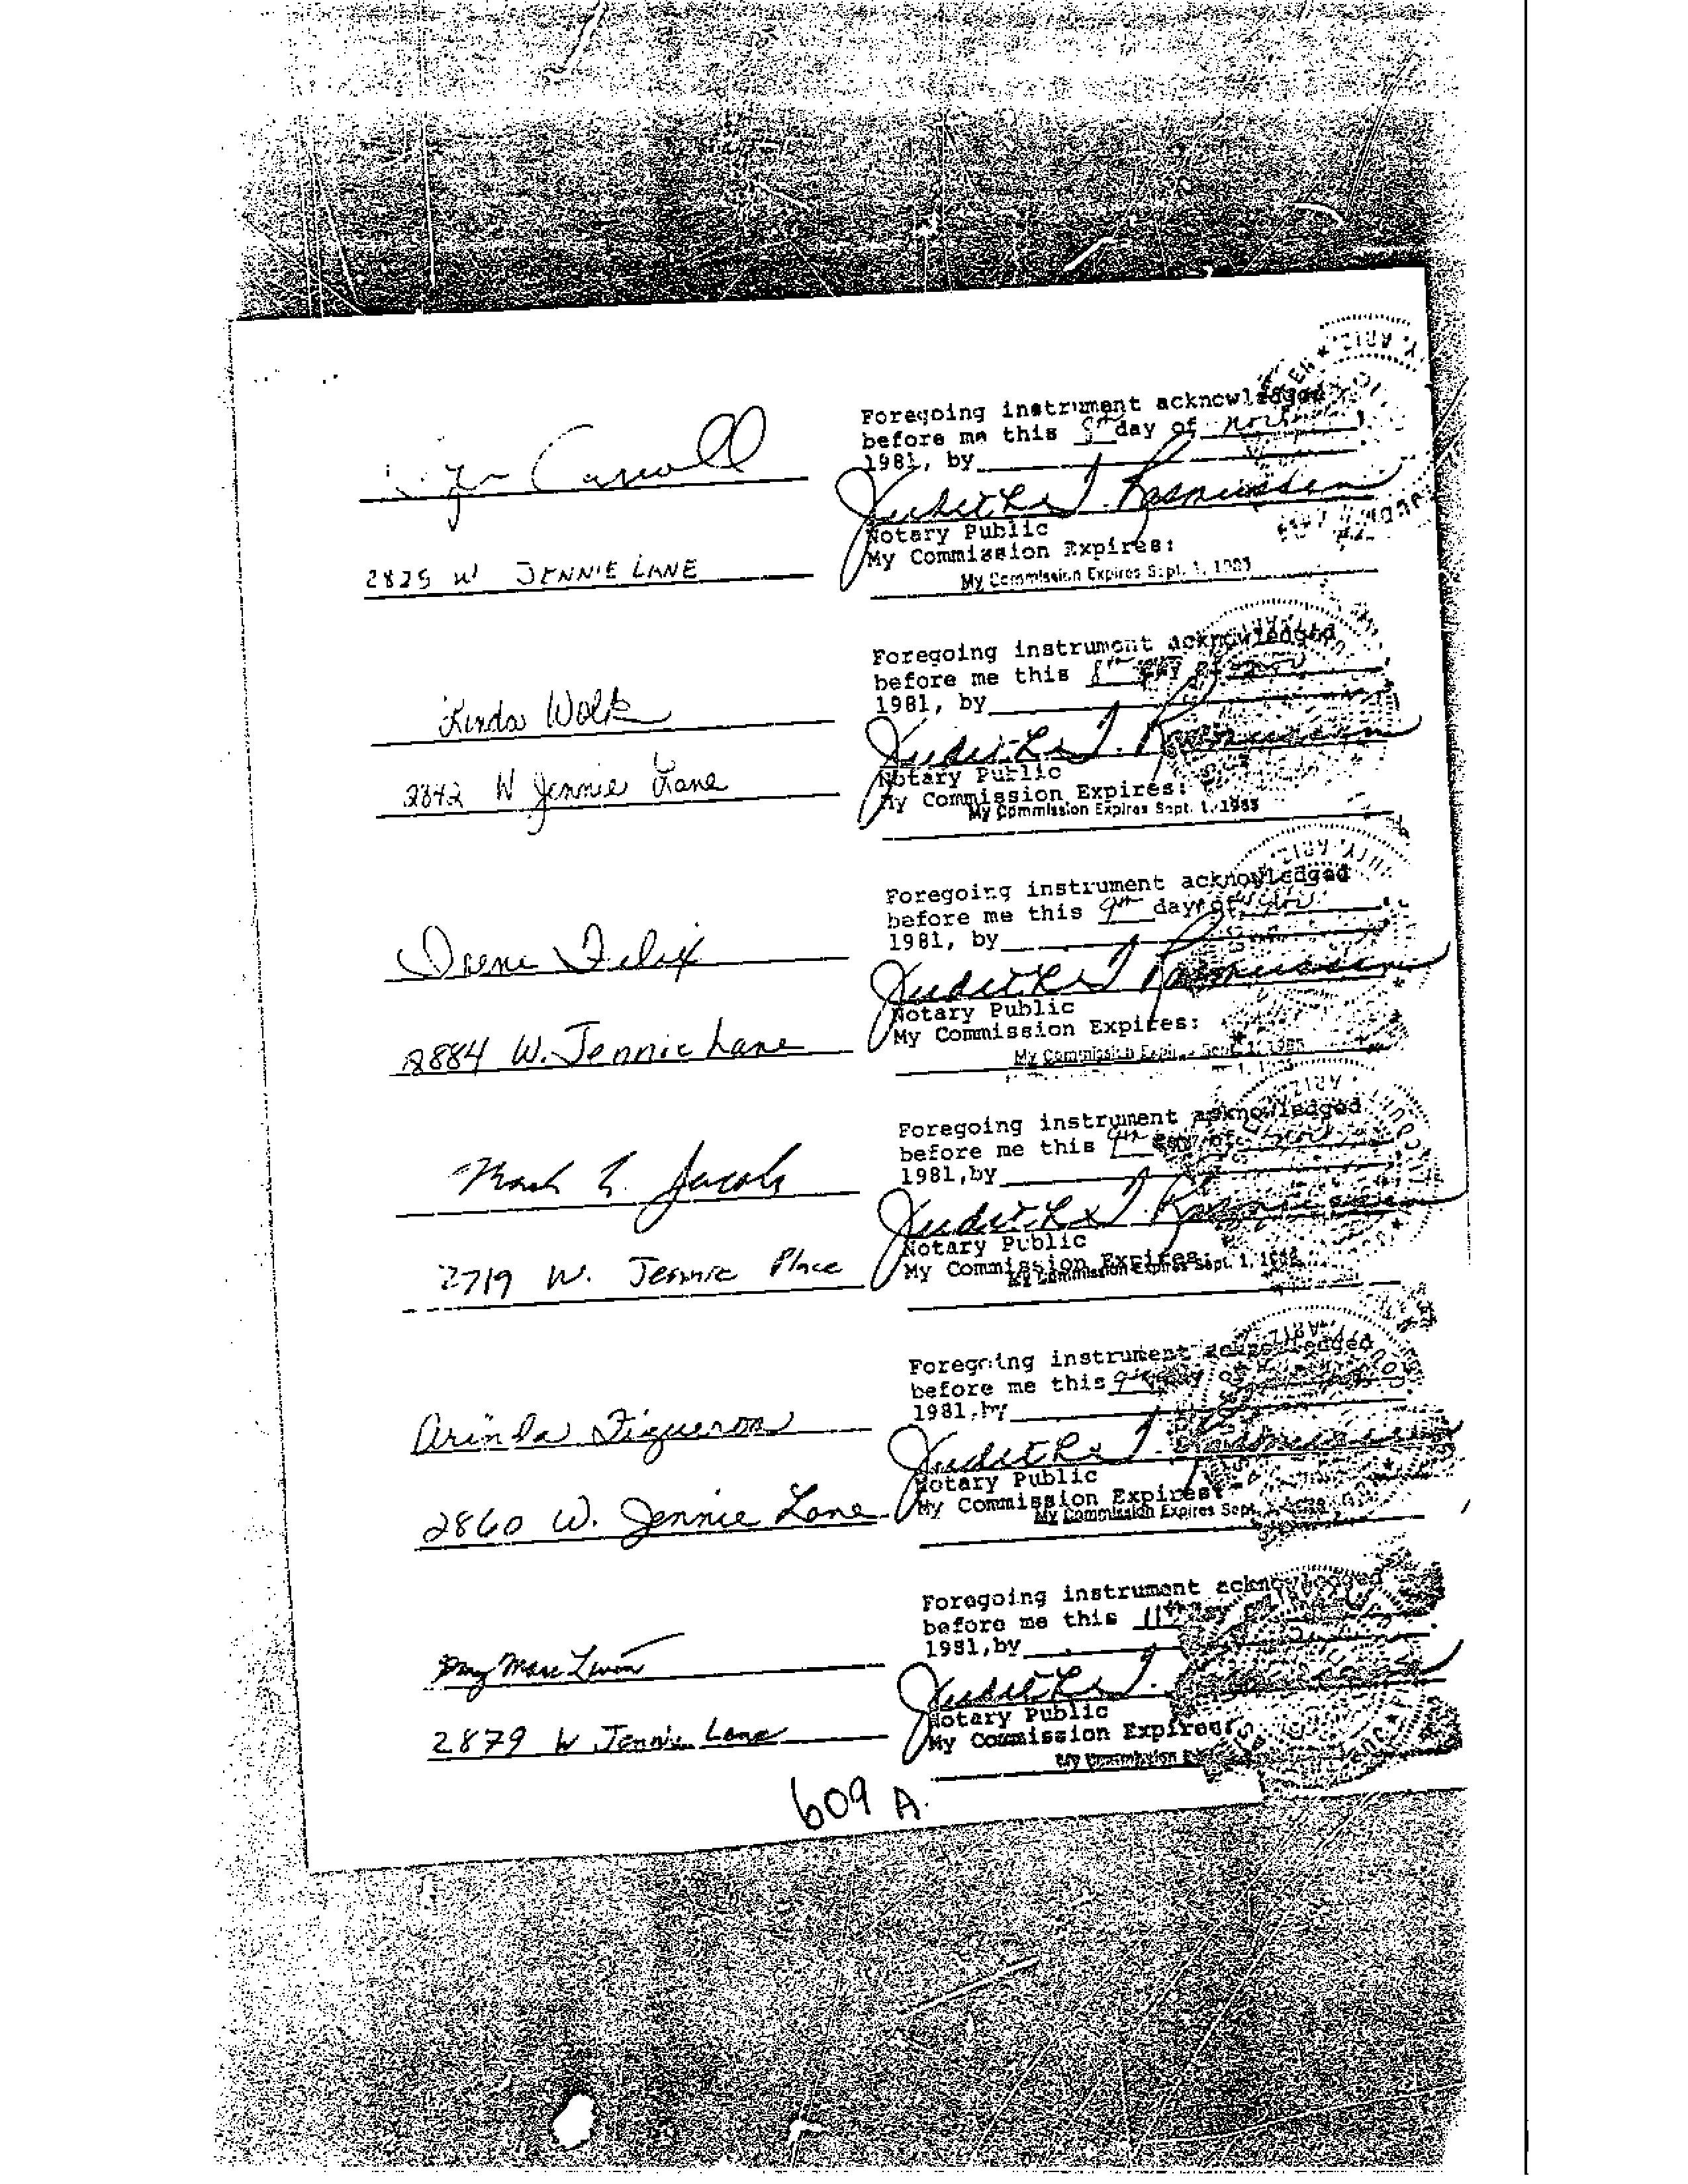 Foregoing instrument acknowledged
before me this 8th day of
1981, by
Carroll
Judithe J. Rasmussen
Notary Public
My Commission Expires:
My Commission Expires Sept. 1,
2825 W JENNIE LANE
Foregoing instrument acknowledged
before me this 8th day of Nov
1981, by
Linda Wolk
Judithe J. Rasmussen
Notary Public
2842 W Jennie Lane
My Commission Expires:
My Commission Expires Sept. 1, 1985
Foregoing instrument acknowledged
before me this 9th day of Nov
1981, by
Irene Felix
Judithe J Rasmussen
Notary Public
My Commission Expires:
2884 W. Jennie Lane
My Commission Sept. 1, 1985
Foregoing instrument acknowledged
before me this 9th day of
1981,by
Mark L. Jacobs
Judithe J. Rasmussen
Notary Public
2719 W. Jennie Place
My Commission Expires:
My Commission Expires Sept. 1,
Foregoing instrument acknowledged
before me this 9th day
1981,by
Arinda Figueroa
Judithe J. Rasmussen
Notary Public
2860 W. Jennie Lane
My Commission Expires:
My Commission Expires Sept.
Foregoing instrument acknowledged
before me this 11th
1981,by
Judithe J.
Notary Public
2879 W Jennie Lane
My Commission Expires:
My Commission
609 A.